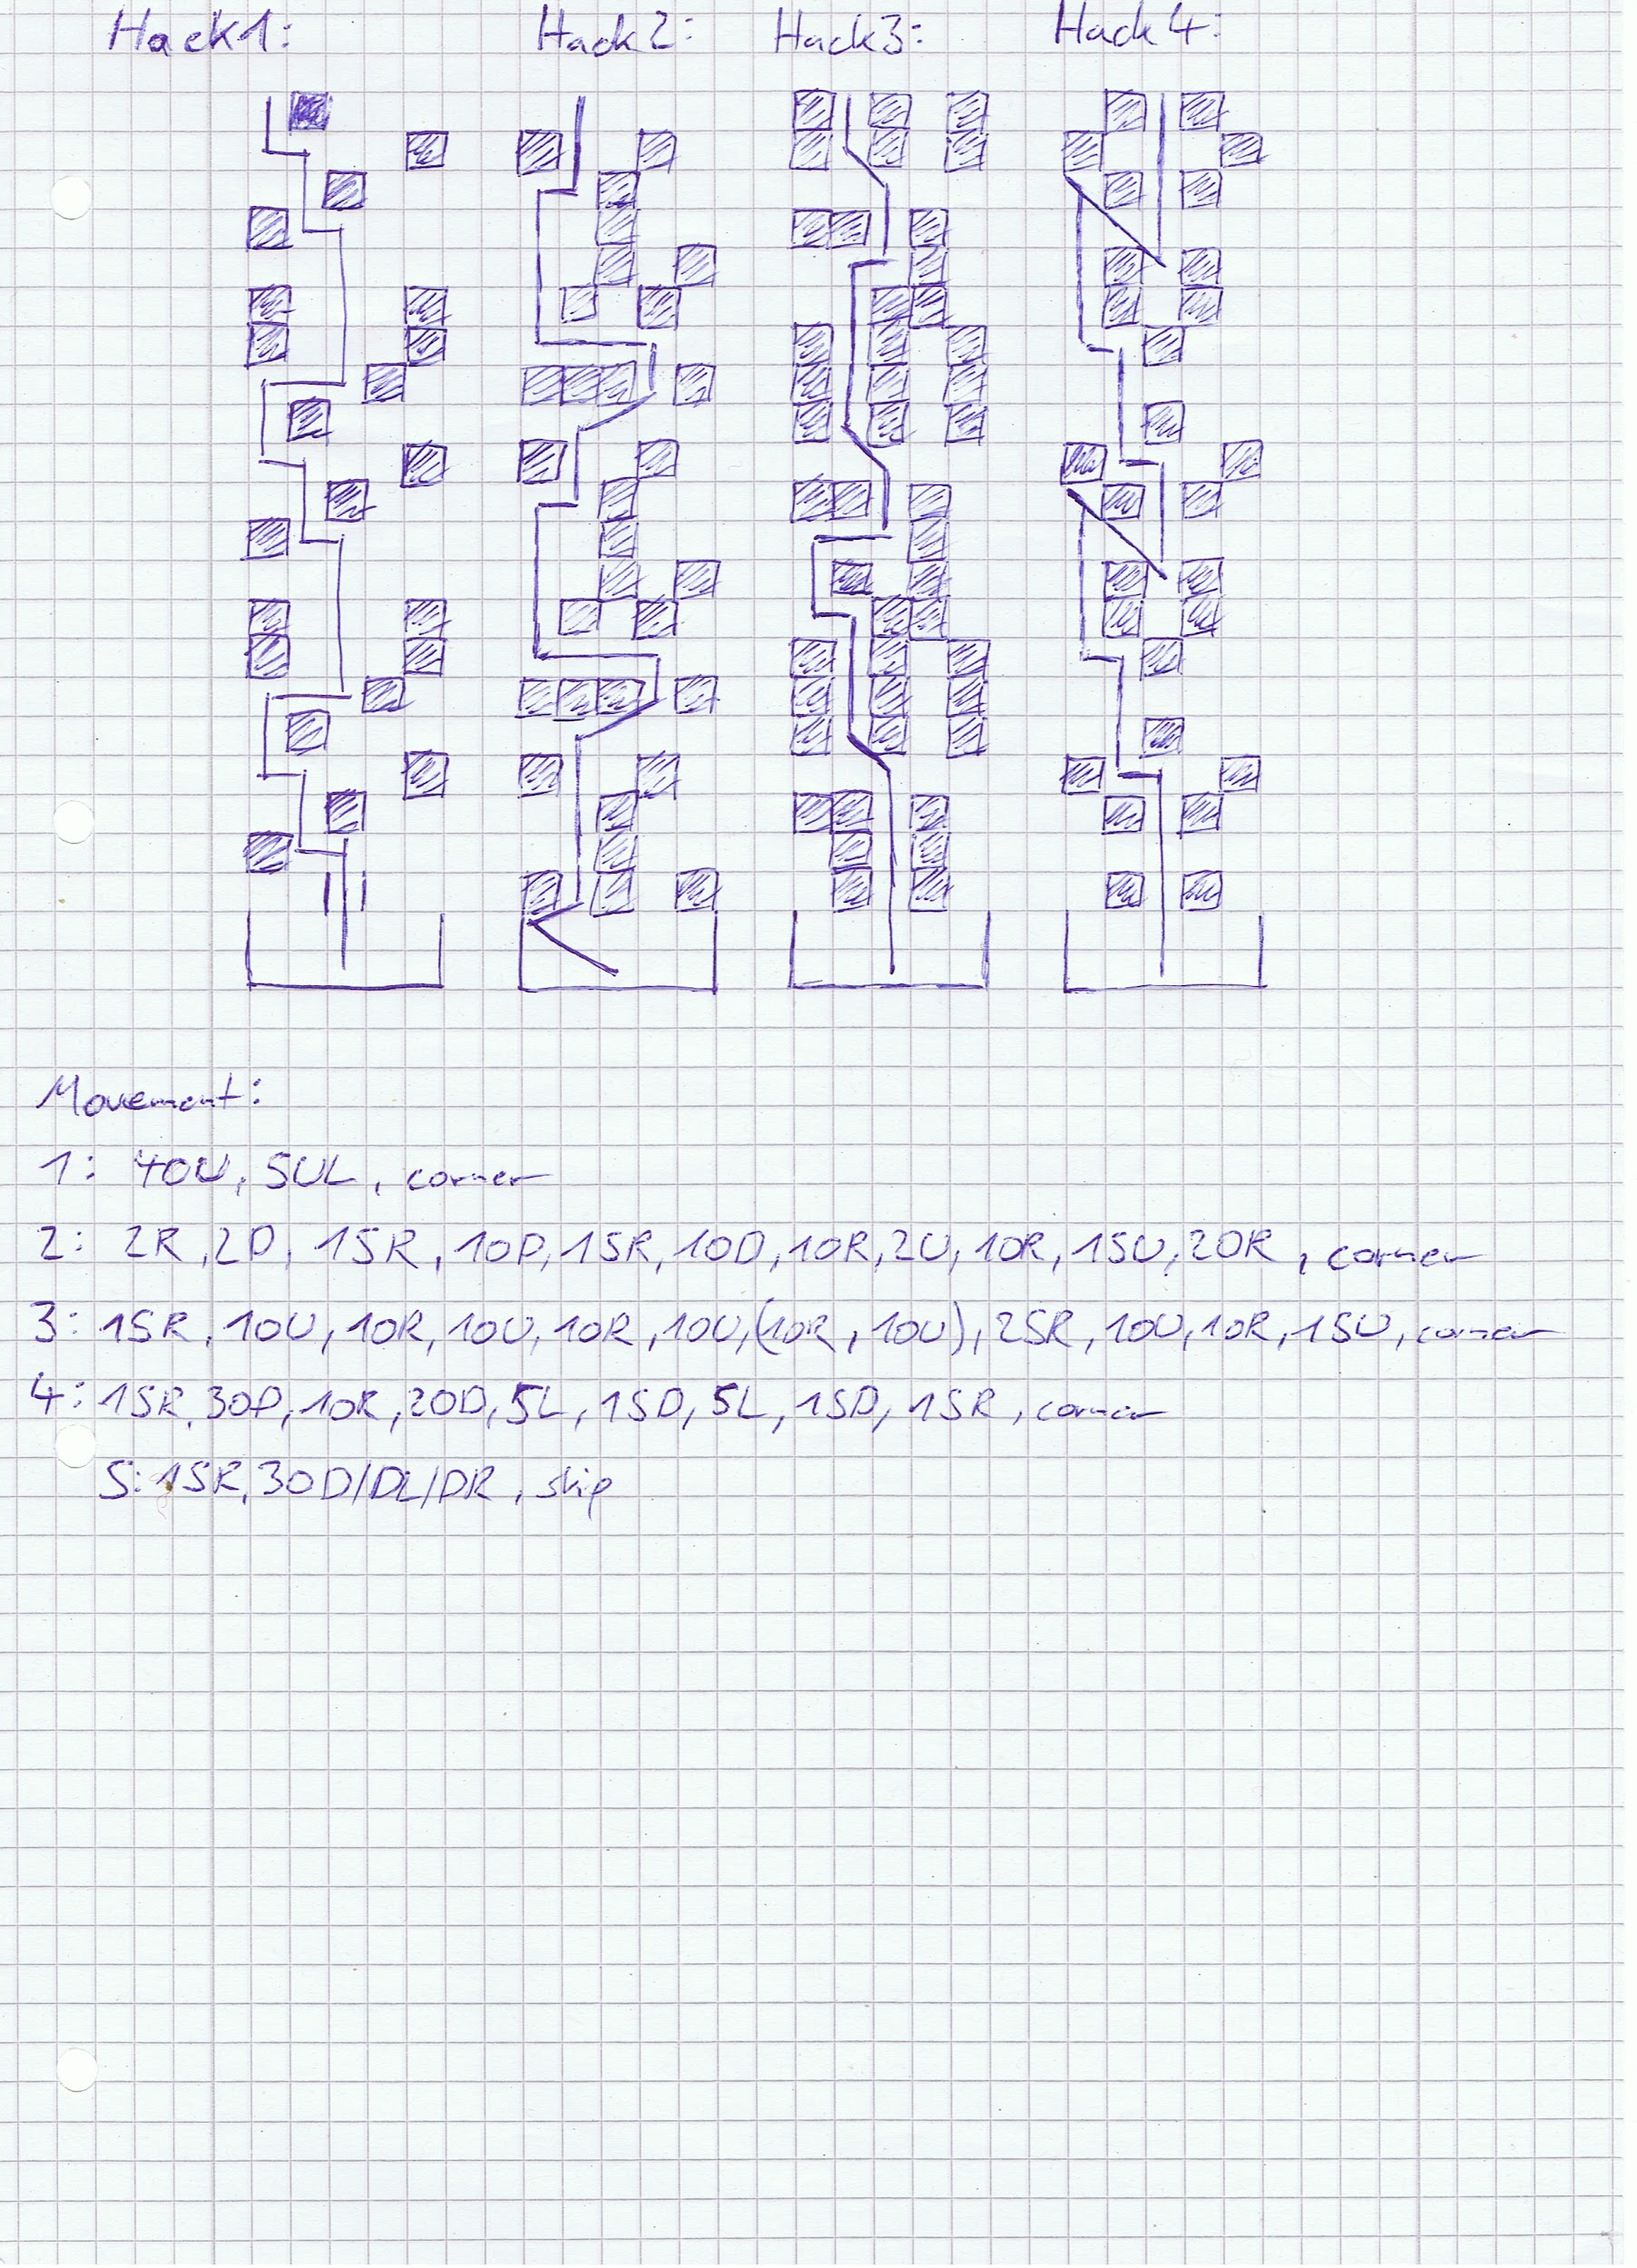 Hack1: Hack2: Hack3: Hack4:
Movement:
1: 40U, 5UL, corner
2: 2R, 2D, 15R, 10D, 15R, 10D, 10R, 2U, 10R, 15U, 20R, corner
3: 15R, 10U, 10R, 10U, 10R, 10U, (10R, 10U), 25R, 10U, 10R, 15U, corner
4: 15R, 30D, 10R, 20D, 5L, 15D, 5L, 15D, 15R, corner
S: 15R, 30D/DL/DR, skip